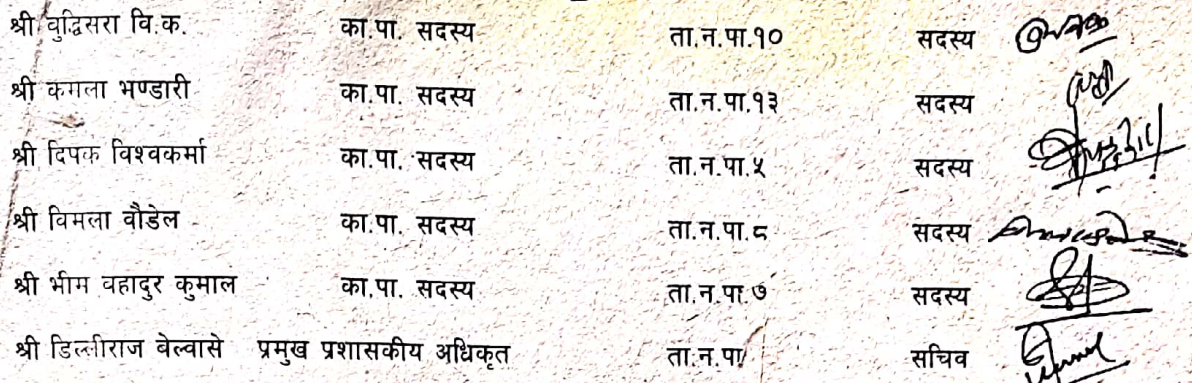 श्री वुद्धिसरा वि.क. का.पा. सदस्य ता.न.पा.१० सदस्य
श्री कमला भण्डारी का.पा. सदस्य ता.न.पा.१३ सदस्य
श्री दिपक विश्वकर्मा का.पा. सदस्य ता.न.पा.५ सदस्य
श्री विमला वौडेल का.पा. सदस्य ता.न.पा.८ सदस्य
श्री भीम वहादुर कुमाल का.पा. सदस्य ता.न.पा.७ सदस्य
श्री डिल्लीराज वेल्वासे प्रमुख प्रशासकीय अधिकृत ता.न.पा सचिव